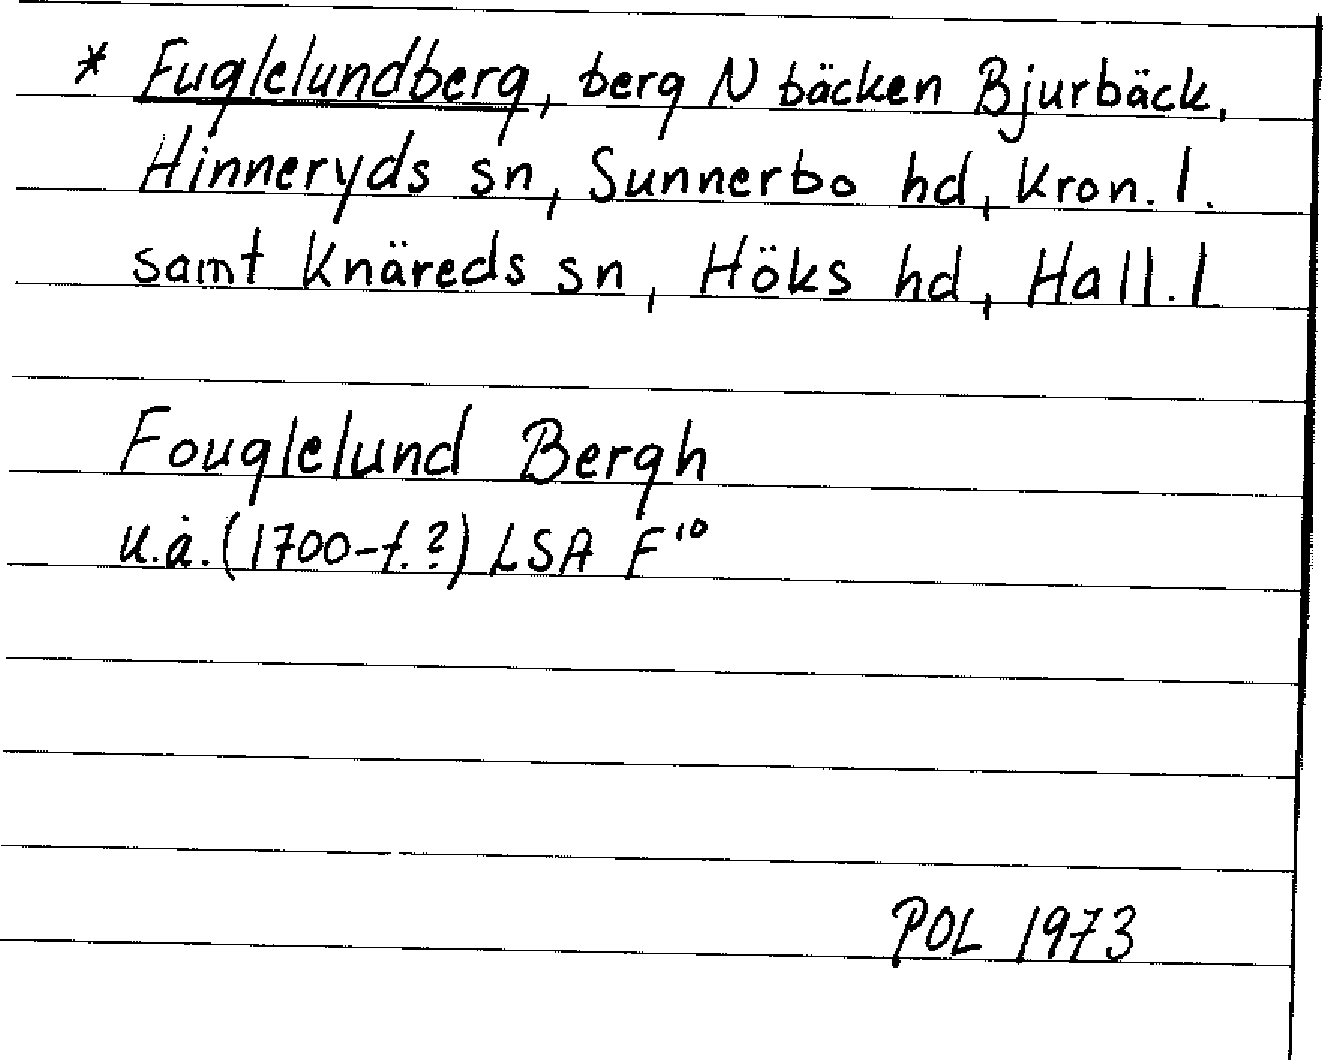 * Fuglelundberg, berg N bäcken Bjurbäck,
Hinneryds sn, Sunnerbo hd, Kron. l.
samt Knäreds sn, Höks hd, Hall. l
Fouglelund Bergh
u.å. (1700-t.?) LSA F¹⁰
POL 1973